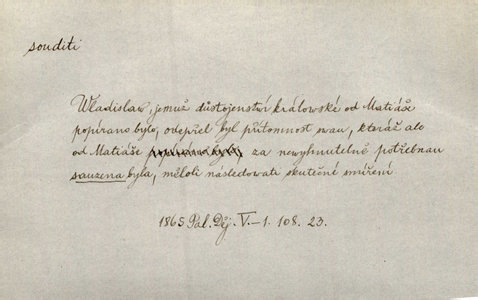 souditi
Wladislaw, jemuž důstojenství králowské od Matiáše
popíráno bylo, odepřel byl přítomnost swau, kteráž ale
od Matiáše popíráno bylo, za newyhnutelně potřebnau
sauzena byla, měloli následowati skutečné smíření
1865 Pal. Děj. V.-1. 108. 23.